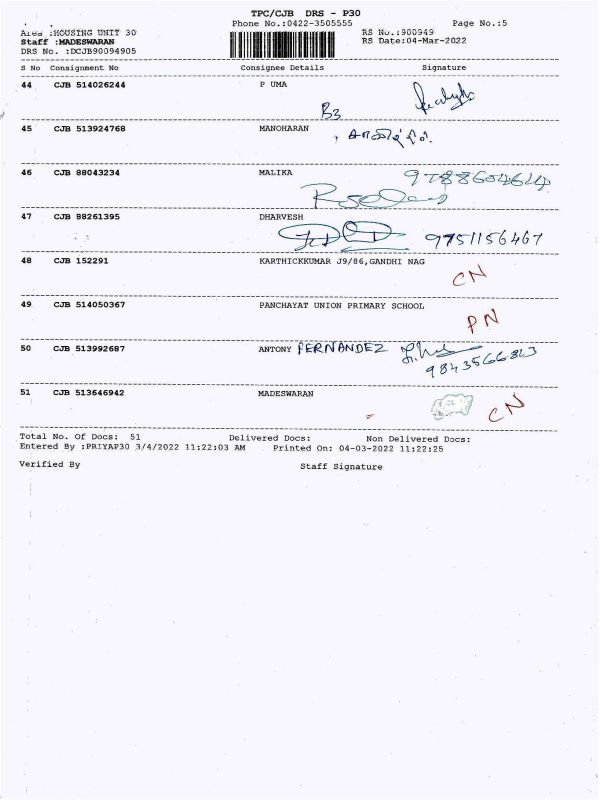 TPC/CJB DRS - P30
Phone No.:0422-3505555 Page No.:5
Area :HOUSING UNIT 30 RS No.:900949
Staff :MADESWARAN RS Date:04-Mar-2022
DRS No. :DCJB90094905
S No Consignment No Consignee Details Signature
44 CJB 514026244 P UMA
B3
45 CJB 513924768 MANOHARAN
46 CJB 88043234 MALIKA 9788604614
47 CJB 88261395 DHARVESH
9751156467
48 CJB 152291 KARTHICKKUMAR J9/86,GANDHI NAG
CN
49 CJB 514050367 PANCHAYAT UNION PRIMARY SCHOOL
PN
50 CJB 513992687 ANTONY FERNANDEZ
51 CJB 513646942 MADESWARAN
CN
Total No. Of Docs: 51 Delivered Docs: Non Delivered Docs:
Entered By :PRIYAP30 3/4/2022 11:22:03 AM Printed On: 04-03-2022 11:22:25
Verified By Staff Signature